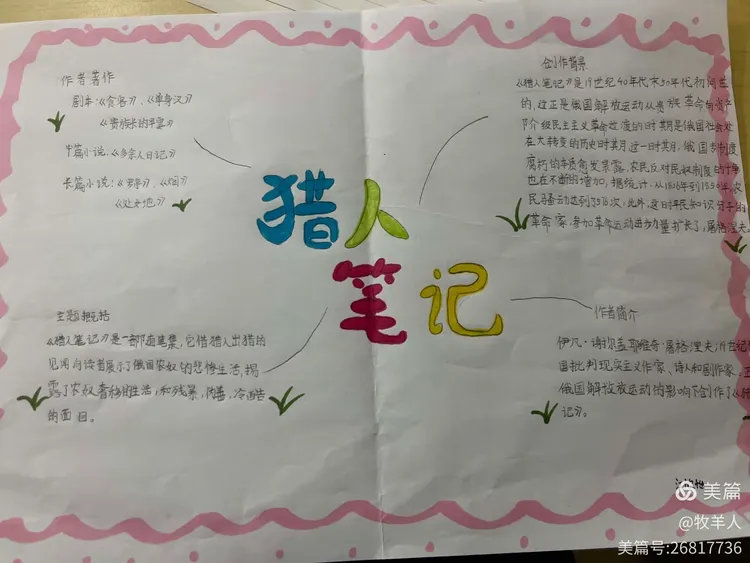 作者著作
剧本:《食客》、《单身汉》
《贵族长的早宴》
中篇小说:《多余人日记》
长篇小说:《罗亭》、《烟》
《处女地》
创作背景
《猎人笔记》是19世纪40年代末50年代初问世
的,这正是俄国解放运动从贵族革命向资产
阶级民主主义革命过渡的时期是俄国社会处
在大转变的历史时期,这一时期,俄国专制度
腐朽的本质愈发暴露,农民反对农奴制度的斗争
也在不断的增加,据统计,从1826年到1850年,农
民骚动达到576次,此外,这时平民知识分子的
革命家,参加革命运动进步力量扩长了,屠格涅夫
猎人
笔记
主题概括
《猎人笔记》是一部随笔集,它借猎人出猎的
见闻向读者展示了俄国农奴的悲惨生活,揭
露了农奴主的生活,和残暴,伪善,冷酷
的面目。
作者简介
伊凡·谢尔盖耶维奇·屠格涅夫,19世纪俄
国批判现实主义作家、诗人和剧作家,正
俄国解放运动的影响下创作了《猎
记》。
美篇
@牧羊人
美篇号:26817736